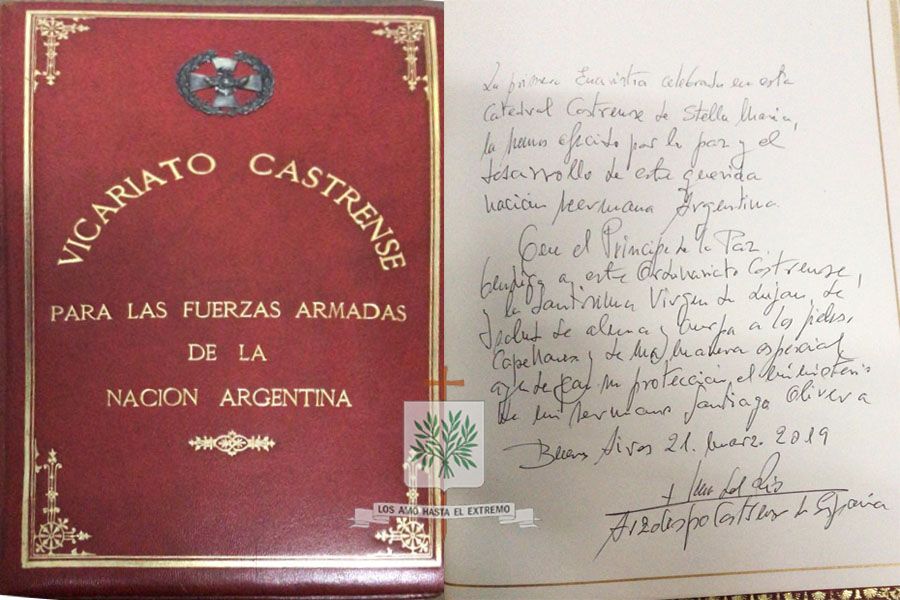 VICARIATO CASTRENSE
PARA LAS FUERZAS ARMADAS
DE LA
NACION ARGENTINA
LOS AMÓ HASTA EL EXTREMO
La primera Eucaristía celebrada en esta
Catedral Castrense de Stella Maris,
la hemos ofrecido por la paz y el
desarrollo de esta querida
nación hermana Argentina.
Que el Príncipe de la Paz
bendiga a este Ordinariato Castrense,
y la Santísima Virgen de Luján, de
salud de alma y cuerpo a los fieles,
Capellanes y de una manera especial
ayude con su protección, el ministerio
de mi hermano Santiago Olivera
Buenos Aires 21. marzo 2019
+ Juan del Río
Arzobispo Castrense de España